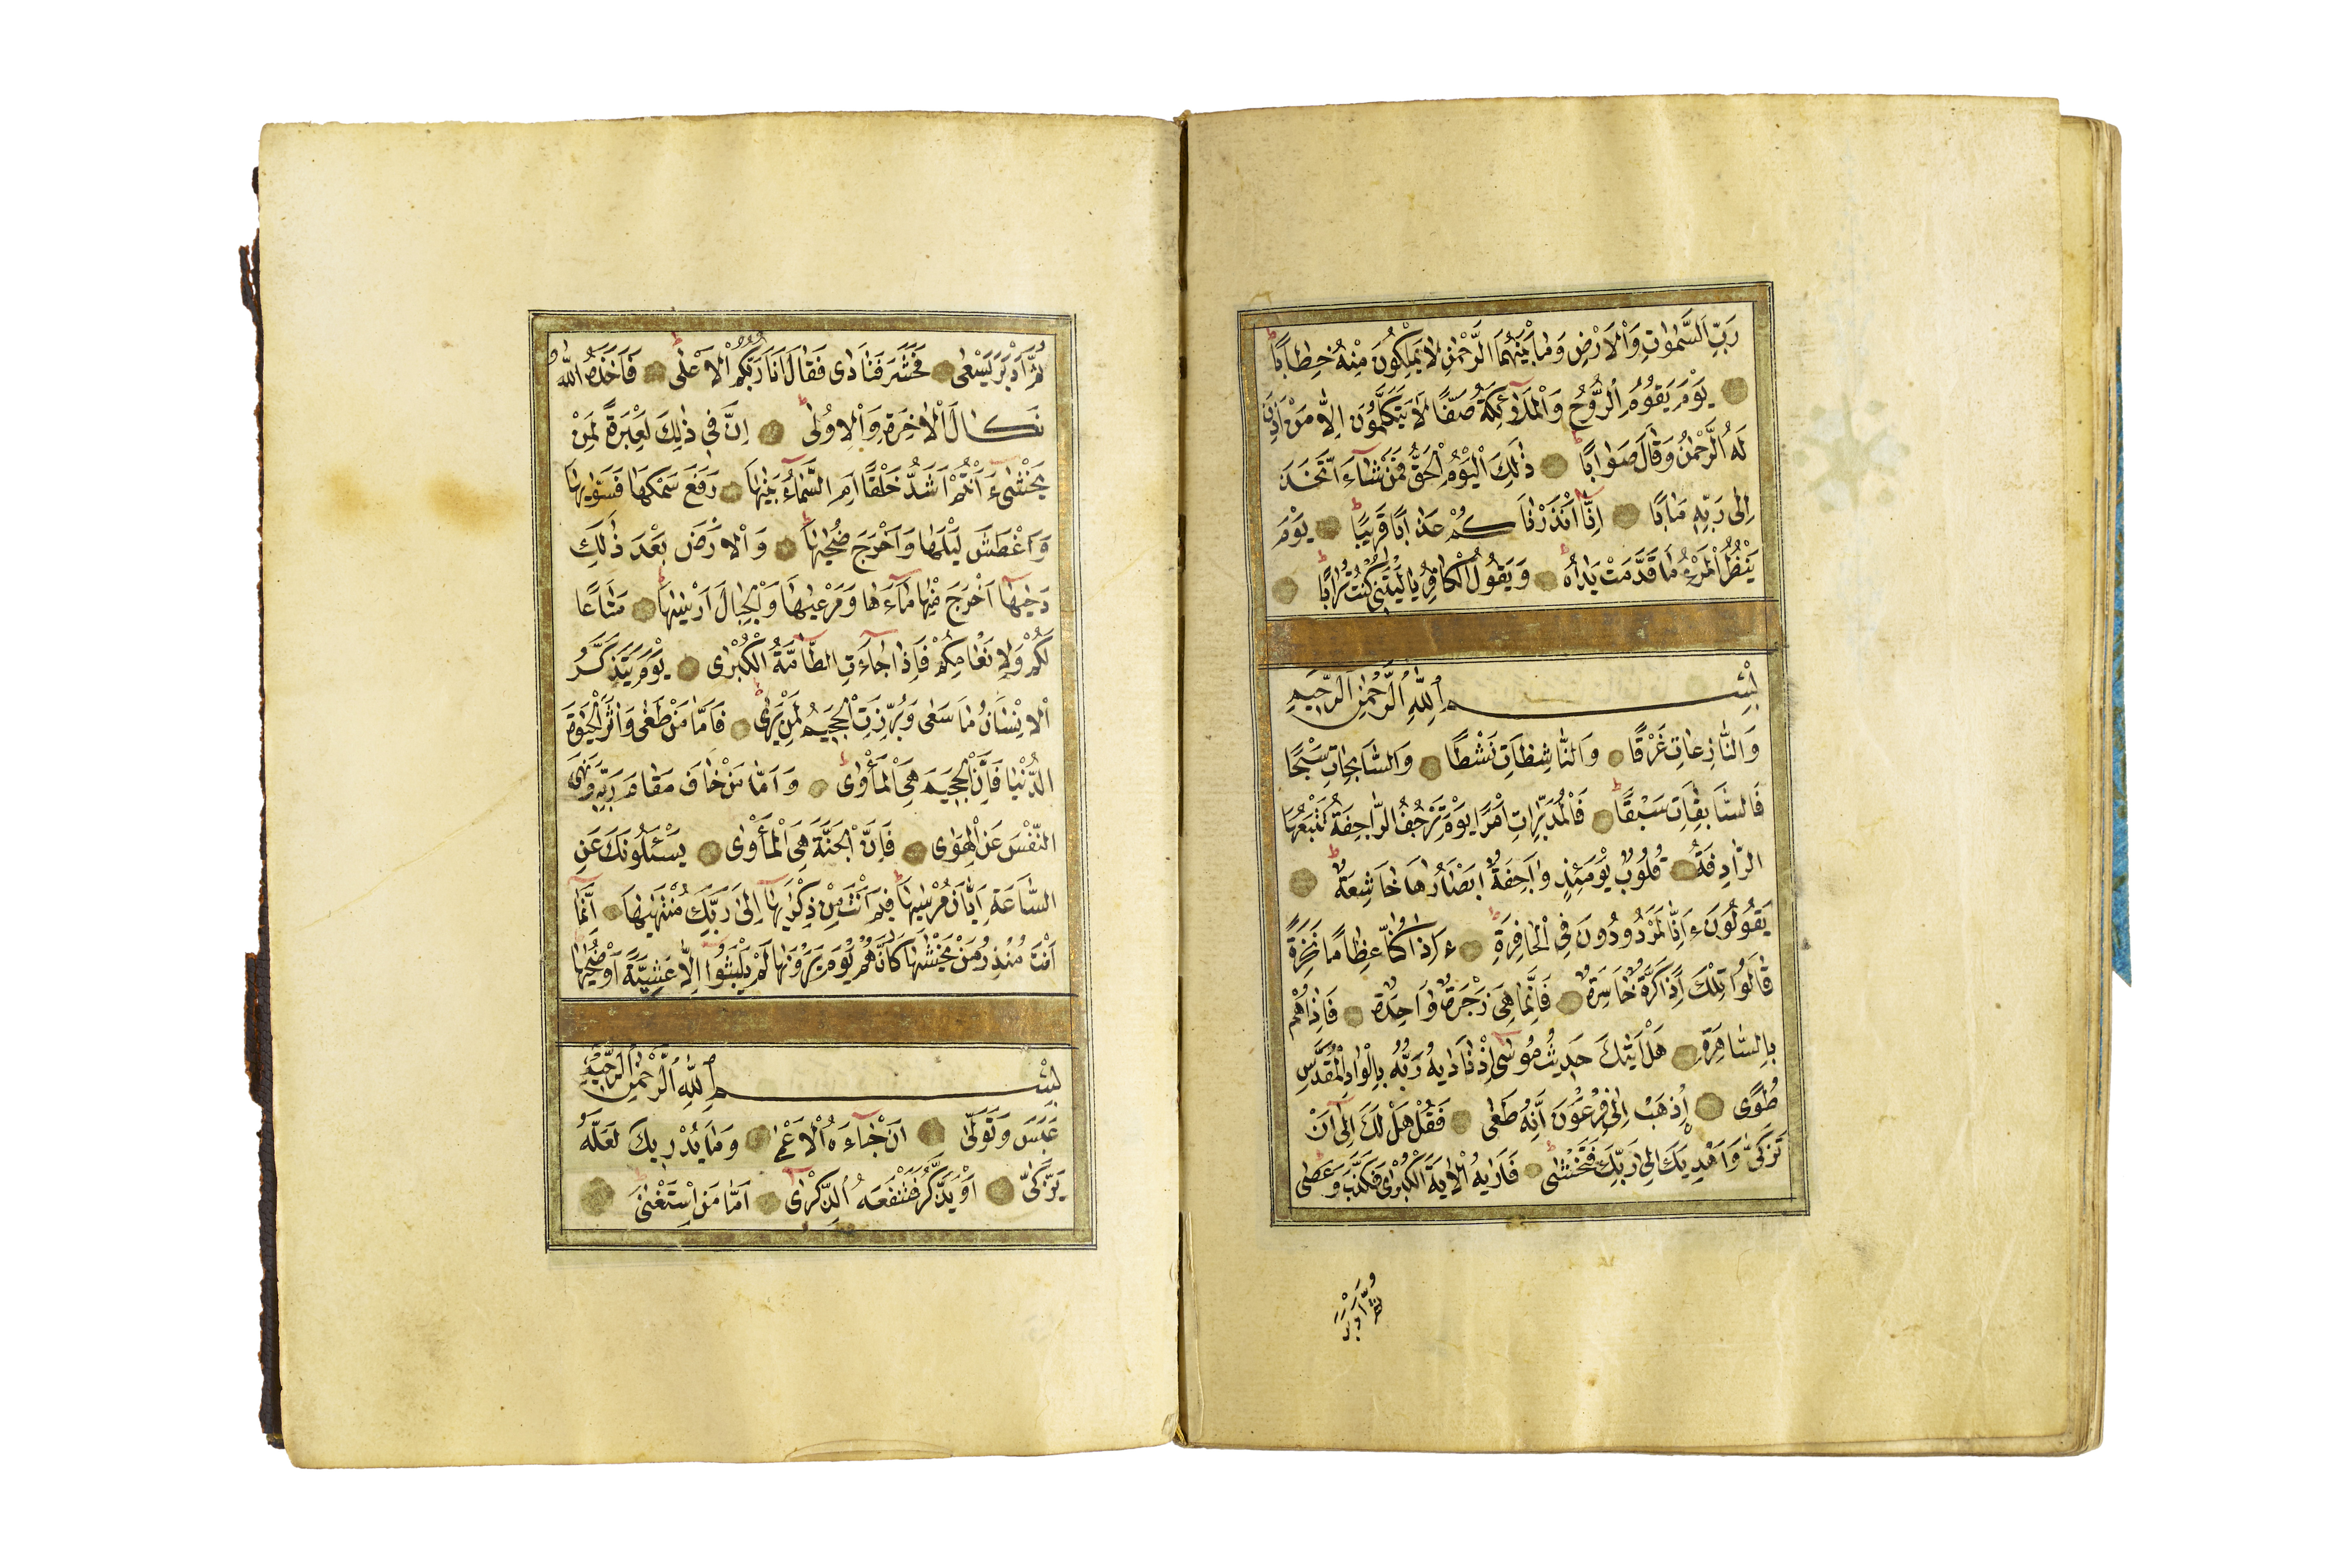 رَبِّ السَّمٰوَاتِ وَالْاَرْضِ وَمَا بَيْنَهُمَا الرَّحْمٰنِ لَا يَمْلِكُونَ مِنْهُ خِطَابًا
يَوْمَ يَقُومُ الرُّوحُ وَالْمَلٰٓئِكَةُ صَفًّا لَا يَتَكَلَّمُونَ اِلَّا مَنْ اَذِنَ
لَهُ الرَّحْمٰنُ وَقَالَ صَوَابًا ذٰلِكَ الْيَوْمُ الْحَقُّ فَمَنْ شَآءَ اتَّخَذَ
اِلٰى رَبِّهِ مَاٰبًا اِنَّٓا اَنْذَرْنَاكُمْ عَذَابًا قَرِيبًا يَوْمَ
يَنْظُرُ الْمَرْءُ مَا قَدَّمَتْ يَدَاهُ وَيَقُولُ الْكَافِرُ يَا لَيْتَنِى كُنْتُ تُرَابًا
بِسْمِ اللّٰهِ الرَّحْمٰنِ الرَّحِيمِ
وَالنَّازِعَاتِ غَرْقًا وَالنَّاشِطَاتِ نَشْطًا وَالسَّابِحَاتِ سَبْحًا
فَالسَّابِقَاتِ سَبْقًا فَالْمُدَبِّرَاتِ اَمْرًا يَوْمَ تَرْجُفُ الرَّاجِفَةُ تَتْبَعُهَا
الرَّادِفَةُ قُلُوبٌ يَوْمَئِذٍ وَاجِفَةٌ اَبْصَارُهَا خَاشِعَةٌ
يَقُولُونَ ءَاِنَّا لَمَرْدُودُونَ فِى الْحَافِرَةِ ءَاِذَا كُنَّا عِظَامًا نَخِرَةً
قَالُوا تِلْكَ اِذًا كَرَّةٌ خَاسِرَةٌ فَاِنَّمَا هِىَ زَجْرَةٌ وَاحِدَةٌ فَاِذَا هُمْ
بِالسَّاهِرَةِ هَلْ اَتٰيكَ حَدِيثُ مُوسٰى اِذْ نَادٰيهُ رَبُّهُ بِالْوَادِ الْمُقَدَّسِ
طُوًى اِذْهَبْ اِلٰى فِرْعَوْنَ اِنَّهُ طَغٰى فَقُلْ هَلْ لَكَ اِلٰٓى اَنْ
تَزَكّٰى وَاَهْدِيَكَ اِلٰى رَبِّكَ فَتَخْشٰى فَاَرٰيهُ الْاٰيَةَ الْكُبْرٰى فَكَذَّبَ وَعَصٰى
ثُمَّ اَدْبَرَ
ثُمَّ اَدْبَرَ يَسْعٰى فَحَشَرَ فَنَادٰى فَقَالَ اَنَا رَبُّكُمُ الْاَعْلٰى فَاَخَذَهُ اللّٰهُ
نَكَالَ الْاٰخِرَةِ وَالْاُولٰى اِنَّ فِى ذٰلِكَ لَعِبْرَةً لِمَنْ
يَخْشٰى ءَاَنْتُمْ اَشَدُّ خَلْقًا اَمِ السَّمَآءُ بَنٰيهَا رَفَعَ سَمْكَهَا فَسَوّٰيهَا
وَاَغْطَشَ لَيْلَهَا وَاَخْرَجَ ضُحٰيهَا وَالْاَرْضَ بَعْدَ ذٰلِكَ
دَحٰيهَا اَخْرَجَ مِنْهَا مَآءَهَا وَمَرْعٰيهَا وَالْجِبَالَ اَرْسٰيهَا مَتَاعًا
لَكُمْ وَلِاَنْعَامِكُمْ فَاِذَا جَآءَتِ الطَّآمَّةُ الْكُبْرٰى يَوْمَ يَتَذَكَّرُ
الْاِنْسَانُ مَا سَعٰى وَبُرِّزَتِ الْجَحِيمُ لِمَنْ يَرٰى فَاَمَّا مَنْ طَغٰى وَاٰثَرَ الْحَيٰوةَ
الدُّنْيَا فَاِنَّ الْجَحِيمَ هِىَ الْمَأْوٰى وَاَمَّا مَنْ خَافَ مَقَامَ رَبِّهِ وَنَهَى
النَّفْسَ عَنِ الْهَوٰى فَاِنَّ الْجَنَّةَ هِىَ الْمَأْوٰى يَسْـَٔلُونَكَ عَنِ
السَّاعَةِ اَيَّانَ مُرْسٰيهَا فِيمَ اَنْتَ مِنْ ذِكْرٰيهَا اِلٰى رَبِّكَ مُنْتَهٰيهَا اِنَّمَٓا
اَنْتَ مُنْذِرُ مَنْ يَخْشٰيهَا كَاَنَّهُمْ يَوْمَ يَرَوْنَهَا لَمْ يَلْبَثُٓوا اِلَّا عَشِيَّةً اَوْ ضُحٰيهَا
بِسْمِ اللّٰهِ الرَّحْمٰنِ الرَّحِيمِ
عَبَسَ وَتَوَلّٰى اَنْ جَآءَهُ الْاَعْمٰى وَمَا يُدْرِيكَ لَعَلَّهُ
يَزَّكّٰى اَوْ يَذَّكَّرُ فَتَنْفَعَهُ الذِّكْرٰى اَمَّا مَنِ اسْتَغْنٰى